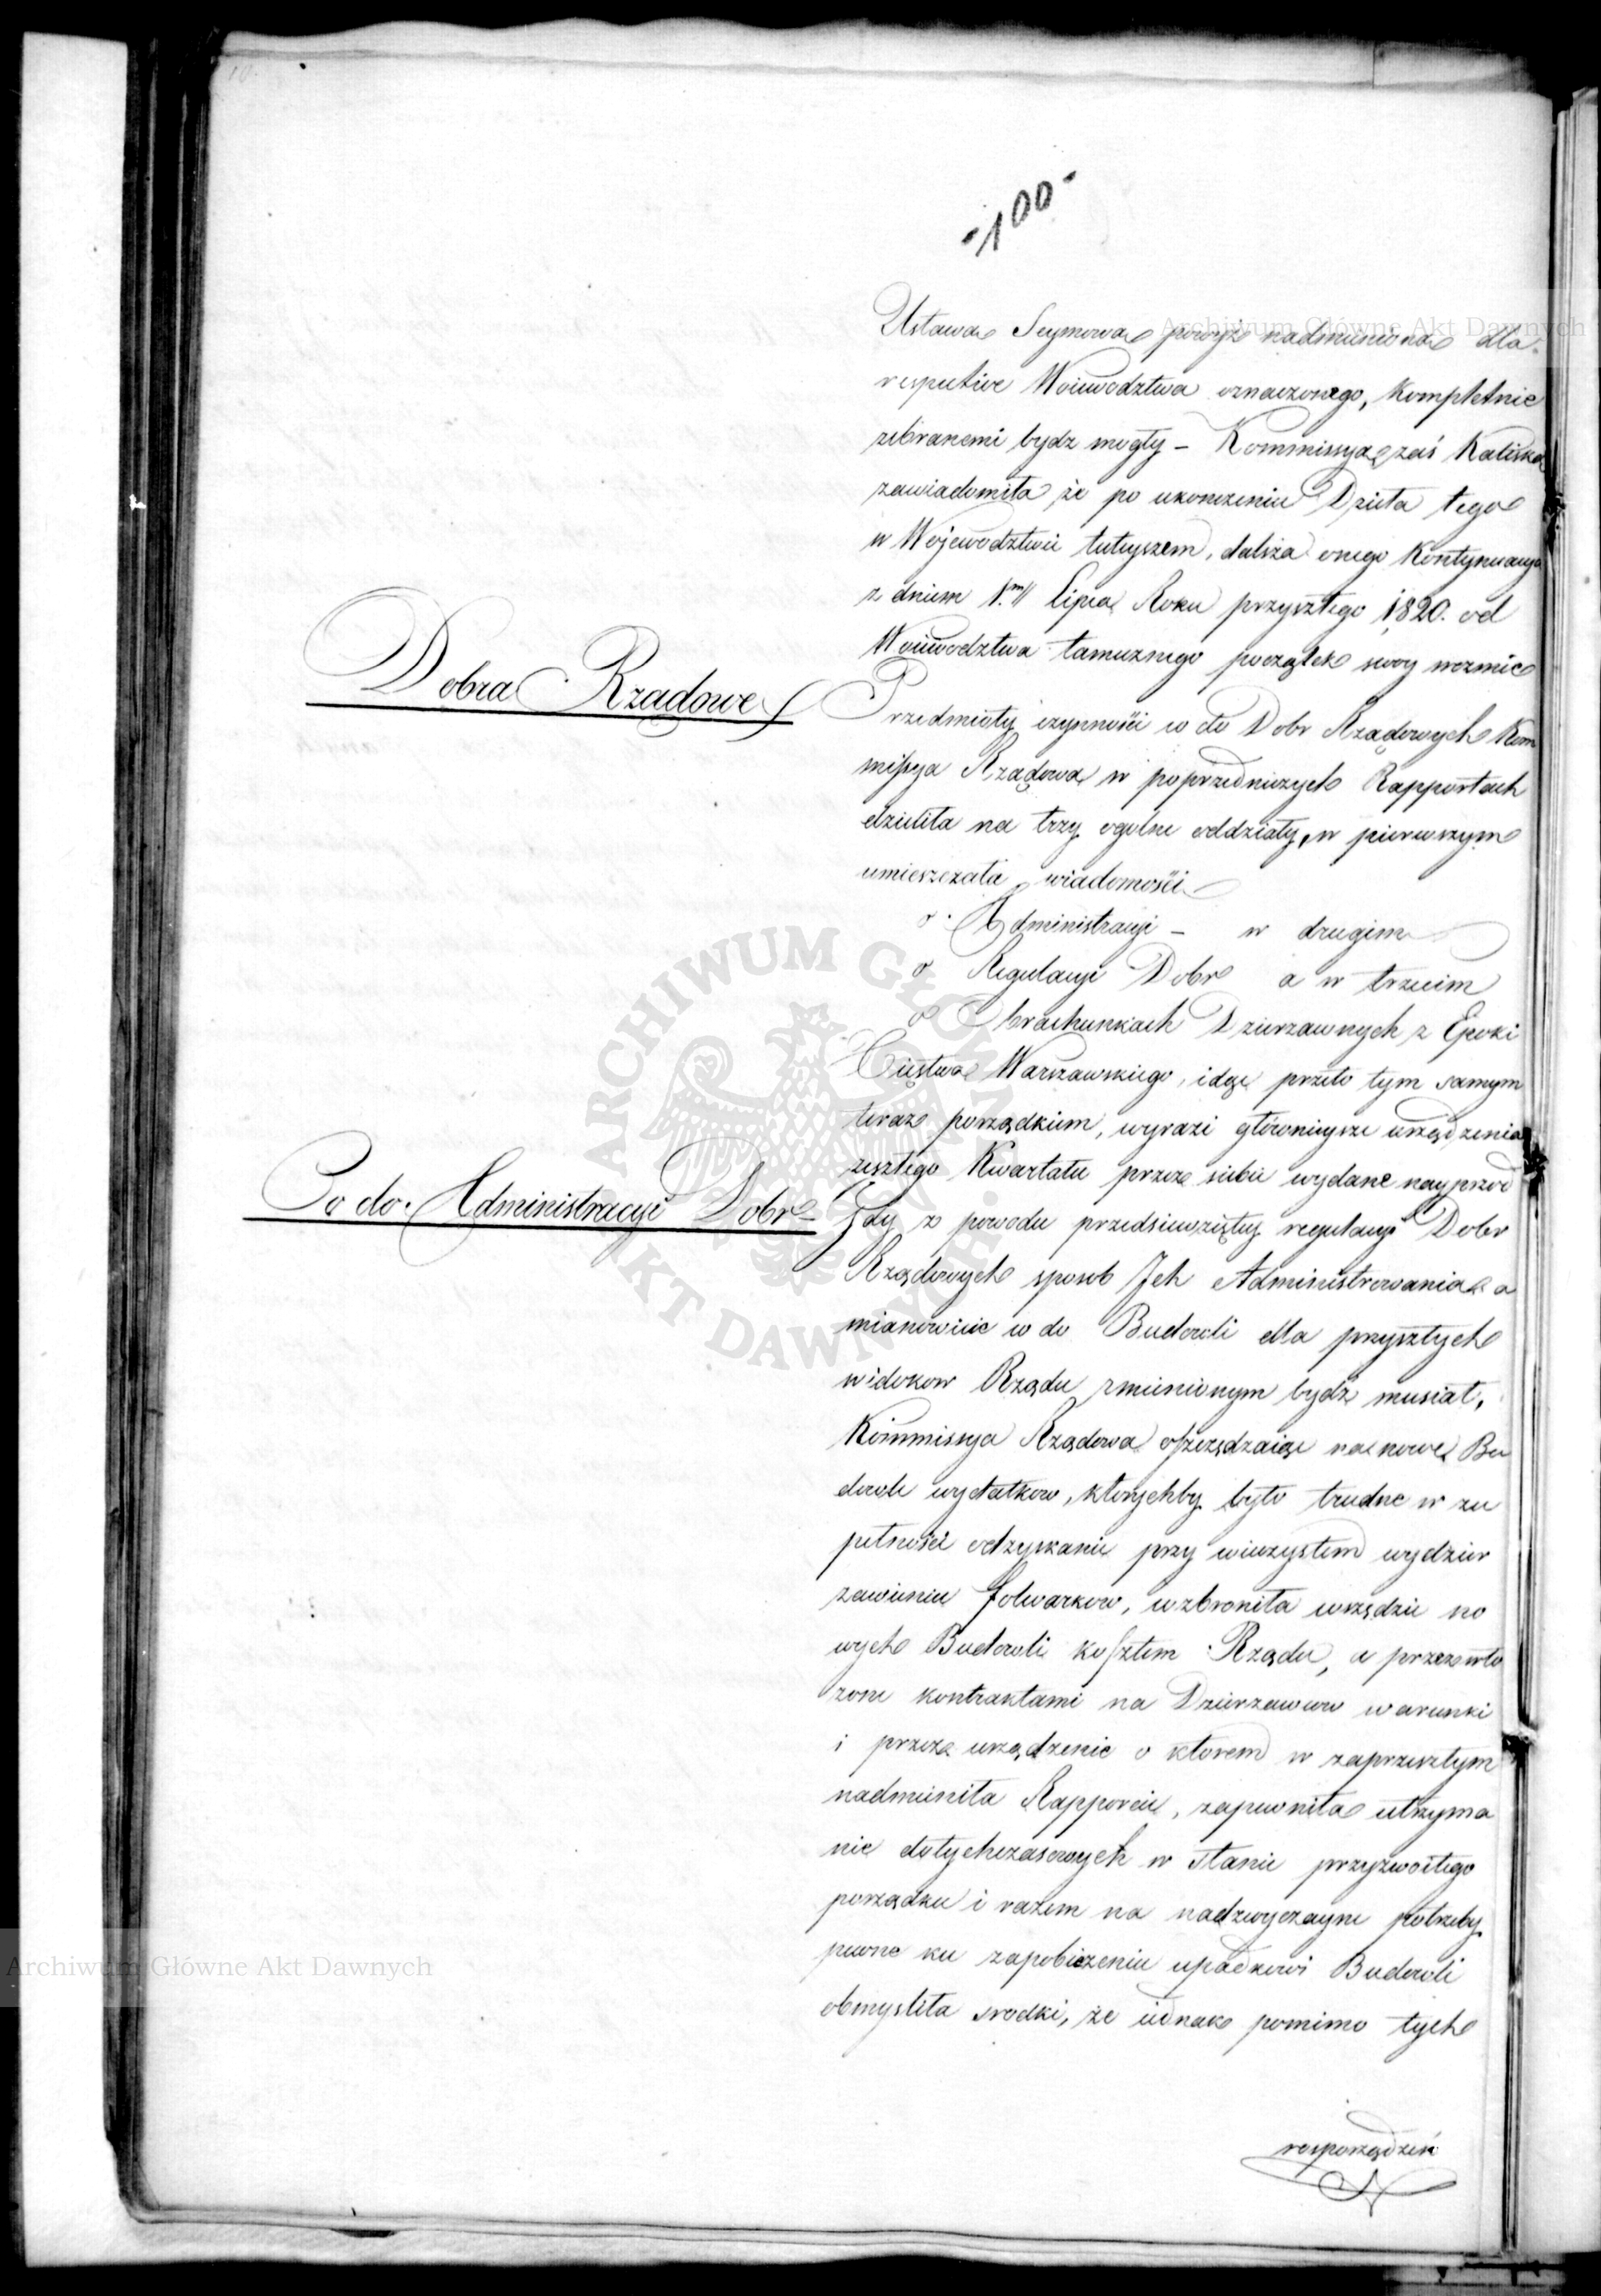 -100-
Ustawa Seymowa powyż nadmieniona dla
respective Woiewodztwa oznaczonego, kompletnie
zebranemi bydz mogły – Kommissya zaś Kaliska
zawiadomiła że po ukończeniu Dzieła tego
w Województwie tuteyszem, dalsza onego kontynuacya
z dniem 1.m Lipca Roku przyszłego 1820. od
Woiewodztwa tamecznego początek swoy weźmie
Dobra Rządowe
Przedmioty czynności co do Dobr Rządowych Kom
missya Rządowa w poprzedniczych Rapportach
dzieliła na trzy ogolne oddziały, w pierwszym
umieszczała wiadomości
o Administracyi – w drugim
o Regulacyi Dobr a w trzecim
o Obrachunkach Dzierzawnych z Epoki
Xięstwa Warszawskiego, idąc przeto tym samym
teraz porządkiem, wyrazi głównieysze urządzenia
zeszłego Kwartału przez siebie wydane nayprzod
Co do Administracyi Dobr –
Gdy z powodu przedsiewziętey regulacyi Dobr
Rządowych sposob Jch Administrowania a
mianowicie co do Budowli dla przyszłych
widokow Rządu zmienionym bydź musiał,
Kommissya Rządowa oszczędzaiąc na nowe Bu
dowle wydatkow, ktorychby było trudne w zu
pełności odzyskanie przy wieczystem wydzier
zawieniu folwarkow, wzbroniła wszędzie no
wych Budowli kosztem Rządu, a przez wło
zone kontraktami na Dzierzawcow warunki
i przez urządzenie o ktorem w zaprzeszłym
nadmieniła Rapporcie, zapewniła utrzyma
nie dotychczasowych w stanie przyzwoitego
porządku i razem na nadzwyczayne potrzeby
pewne ku zapobieżeniu upadkowi Budowli
obmyśliła srodki, że iednak pomimo tych
rosporządzeń
Archiwum Główne Akt Dawnych
Archiwum Główne Akt Dawnych
ARCHIWUM GŁÓWNE AKT DAWNYCH